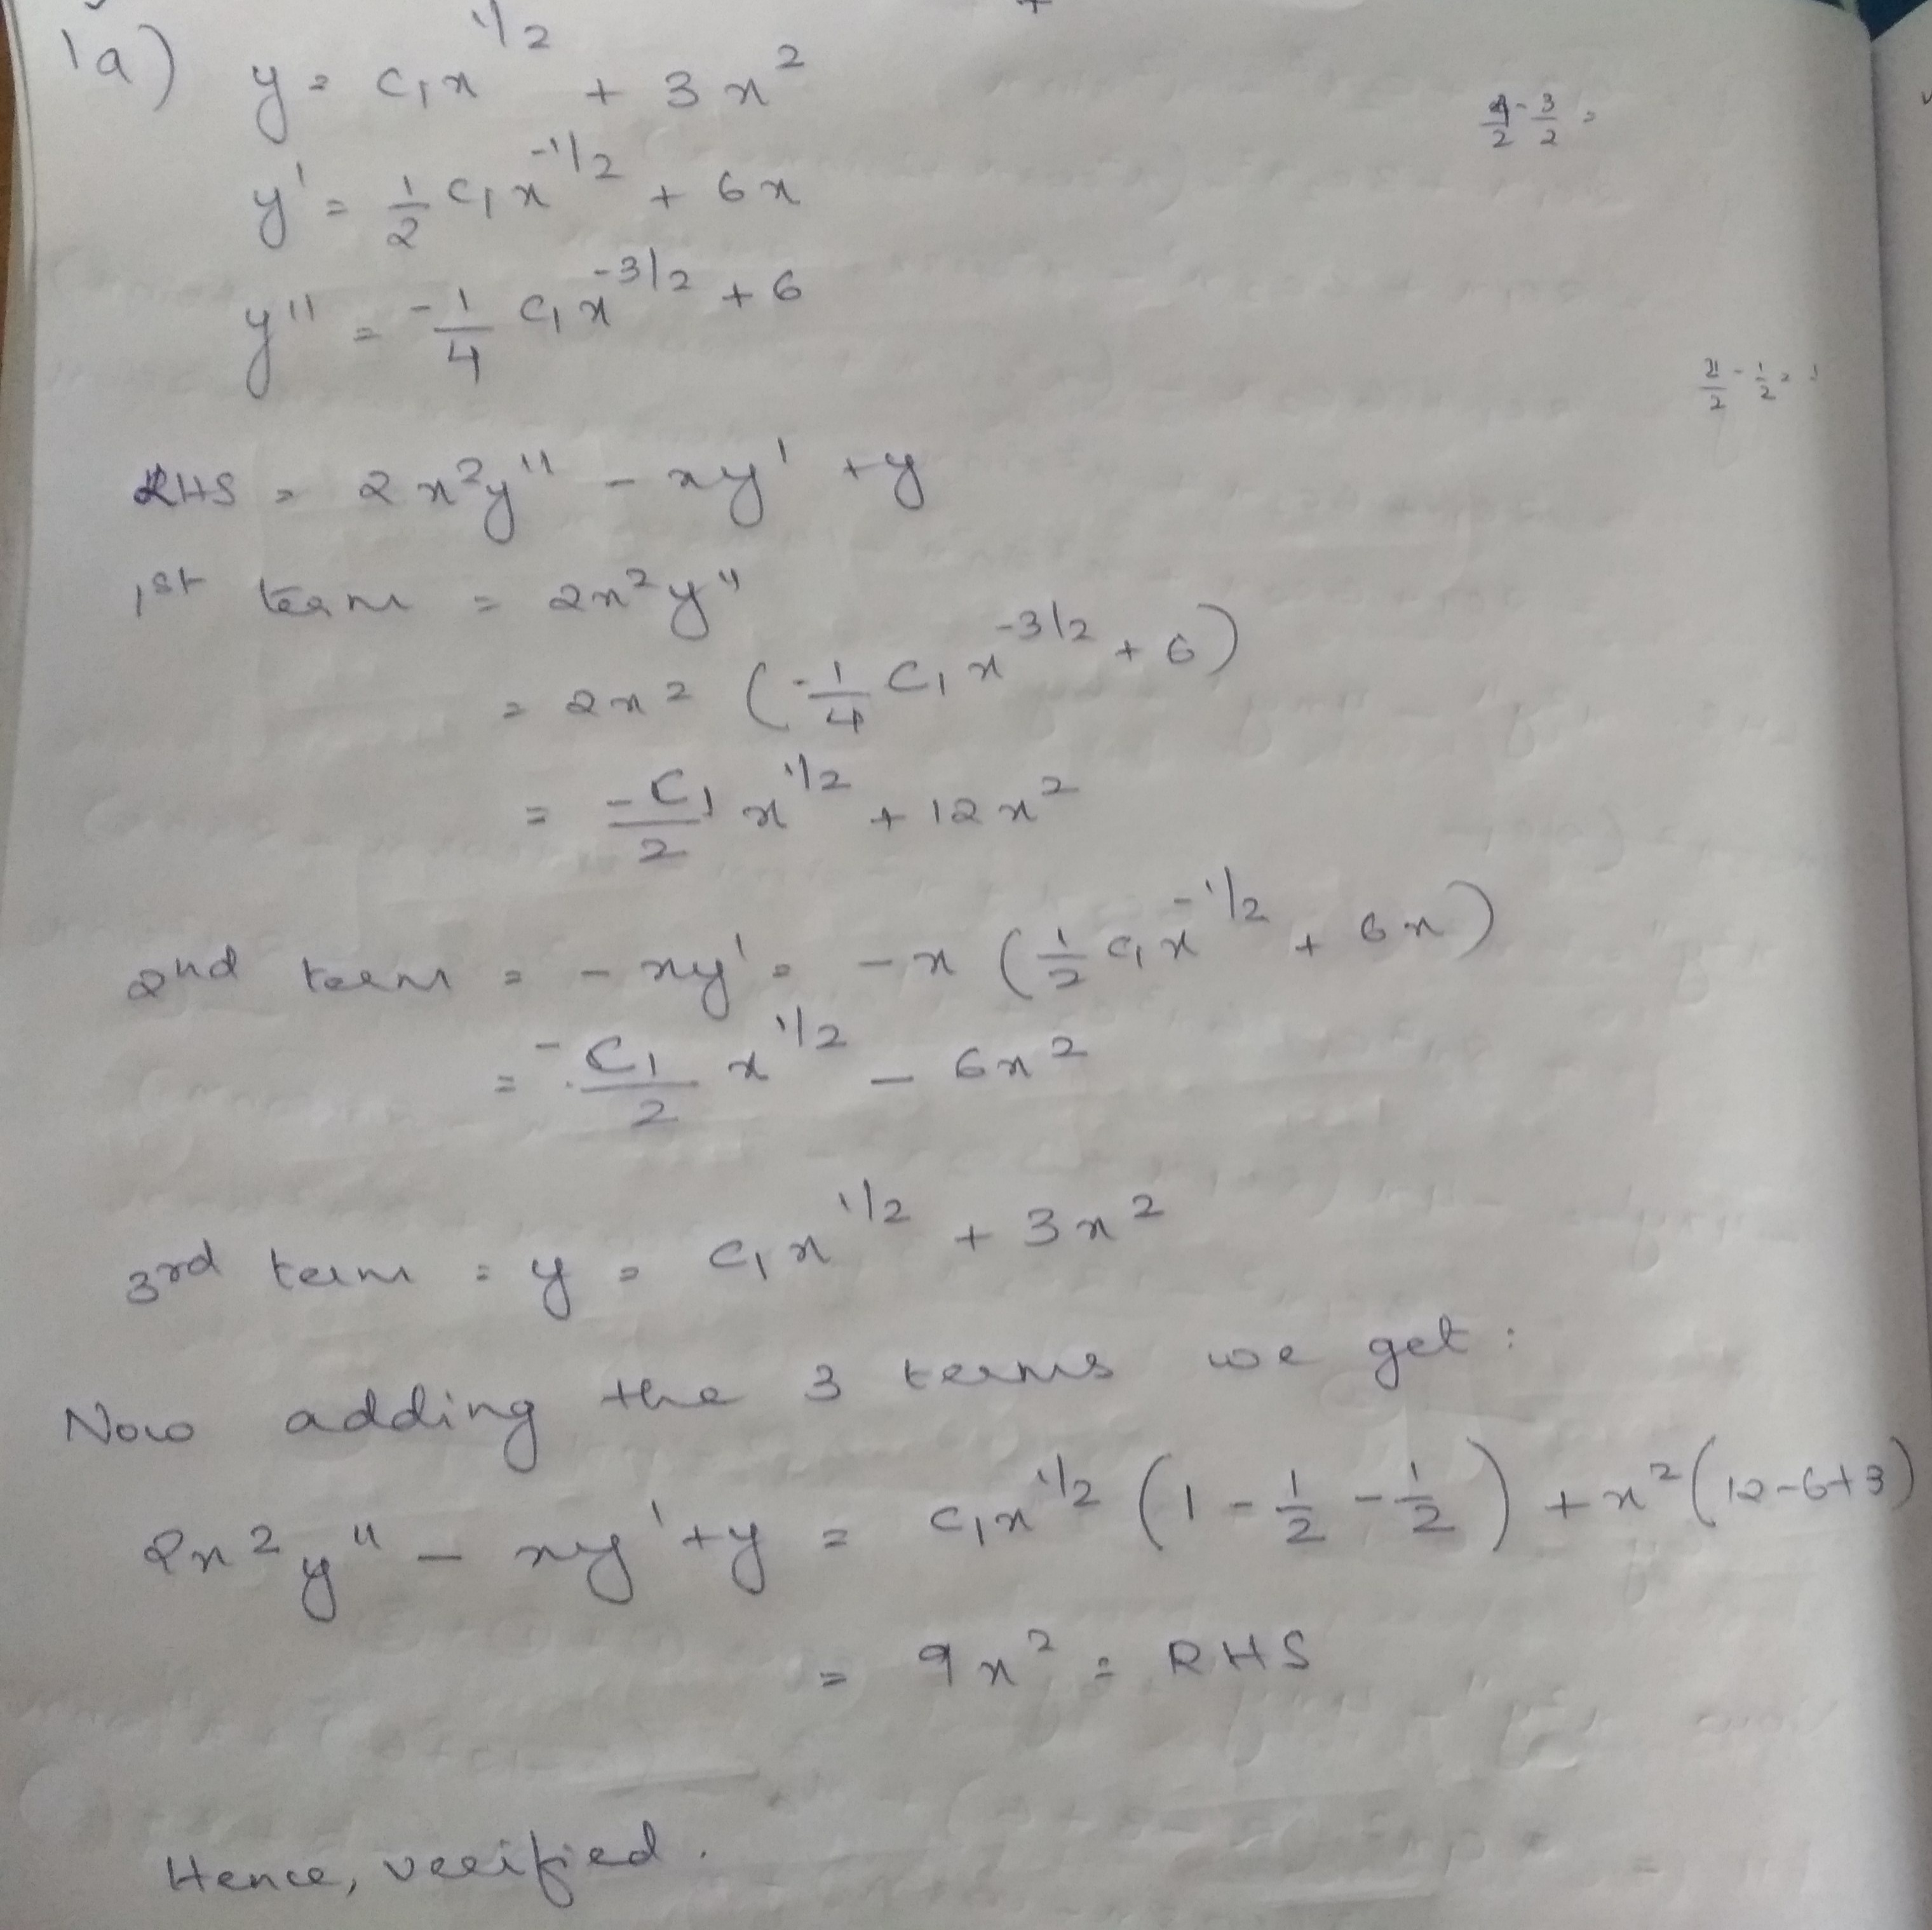 1a) y = c₁x^(1/2) + 3x²
4/2 - 3/2 =
y' = 1/2 c₁x^(-1/2) + 6x
y'' = -1/4 c₁x^(-3/2) + 6
2/2 - 1/2 =
LHS = 2x²y'' - xy' + y
1st term = 2x²y''
= 2x² (-1/4 c₁x^(-3/2) + 6)
= -c₁/2 x^(1/2) + 12x²
2nd term = -xy' = -x (1/2 c₁x^(-1/2) + 6x)
= -c₁/2 x^(1/2) - 6x²
3rd term = y = c₁x^(1/2) + 3x²
Now adding the 3 terms we get :
2x²y'' - xy' + y = c₁x^(1/2) (1 - 1/2 - 1/2) + x²(12-6+3)
= 9x² = RHS
Hence, verified.